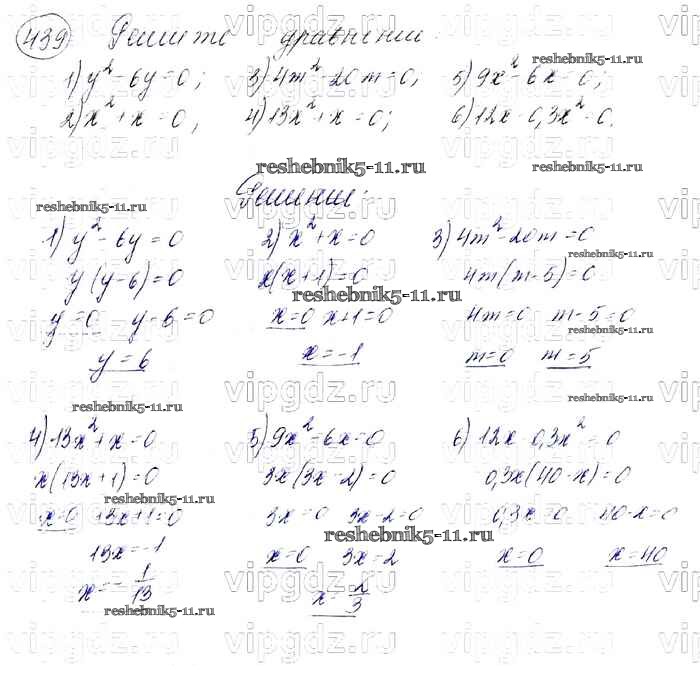 439 Решите уравнения:
1) y² - 6y = 0; 3) 4m² - 20m = 0; 5) 9x² - 6x = 0;
2) x² + x = 0; 4) 13x² + x = 0; 6) 12x - 0,3x² = 0.
reshebnik5-11.ru
Решение:
1) y² - 6y = 0 2) x² + x = 0 3) 4m² - 20m = 0
y(y - 6) = 0 x(x + 1) = 0 4m(m - 5) = 0
y = 0 y - 6 = 0 x = 0 x + 1 = 0 4m = 0 m - 5 = 0
y = 6 x = -1 m = 0 m = 5
4) 13x² + x = 0 5) 9x² - 6x = 0 6) 12x - 0,3x² = 0
x(13x + 1) = 0 3x(3x - 2) = 0 0,3x(40 - x) = 0
x = 0 13x + 1 = 0 3x = 0 3x - 2 = 0 0,3x = 0 40 - x = 0
13x = -1 x = 0 3x = 2 x = 0 x = 40
x = -1/13 x = 2/3
vipgdz.ru